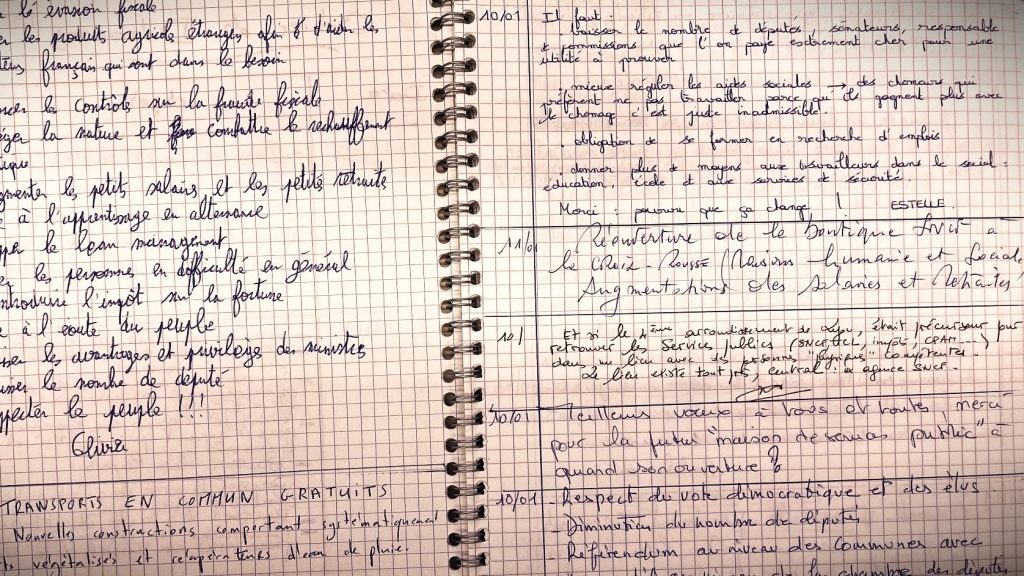 évasion fiscale
les produits agricole étrangers afin d'aider les
français qui sont dans le besoin
le contrôle sur la fraude fiscale
la nature et combattre le rechauffement
les petits salaires et les petits retraite
à l'apprentissage en alternance
le lean management
les personnes en difficulté en général
l'impôt sur la fortune
à l'écoute du peuple
les avantages et privilèges des ministres
le nombre de député
le peuple !!!
Olivia
TRANSPORTS EN COMMUN GRATUITS
Nouvelles constructions comportant systématiquement
végétalisés et récupérateurs d'eau de pluie.
10/01
Il faut :
. baisser le nombre de députés, sénateurs, responsable
commissions que l'on paye extrement cher pour une
utilité à prouver
. mieux réguler les aides sociales → des chomeurs qui
préfèrent ne pas travailler parce qu'ils gagnent plus avec
le chomage c'est juste inadmissible.
. obligation de se former en recherche d'emplois
. donner plus de moyens aux travailleurs dans le social :
éducation, école et aux services de sécurité.
Merci : pourvu que ça change ! ESTELLE.
11/01 Réouverture de la boutique SNCF à
la CROIX-ROUSSE Maisons humanie et Sociale
Augmentations des Salaires et Retraites
10/ Et si le 4ème arrondissement de Lyon, était précurseur pour
retrouver les Services publics (SNCF, TCL, impôt, CPAM....)
dans un lieu avec des personnes "physiques" compétentes.
Le lieu existe tout près, central : agence SNCF.
10/01 Meilleurs voeux à tous et toutes, merci
pour la futur "maison de services public" à
quand son ouverture ?
10/01 - Respect du vote démocratique et des élus
- Diminution du nombre de députés
- Référendum au niveau des communes avec
la chambre des députés